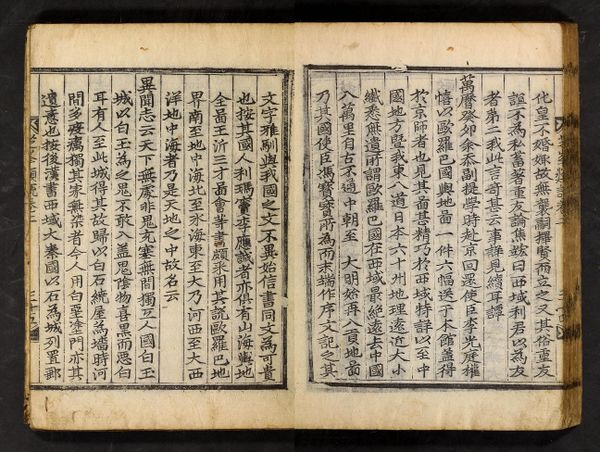 化皇不婚娶故無襲嗣擇賢而立之又其俗重友
誼不為私蓄著重友論焦竑曰西域利君以為友
者第二我此言奇甚云事詳見續耳譚
萬曆癸卯余忝副提學時赴京回還使臣李光庭權
憘以歐羅巴國輿地圖一件六幅送于本館蓋得
於京師者也見其圖甚精巧於西域特詳以至中
國地方曁我東八道日本六十州地理遠近大小
纖悉無遺所謂歐羅巴國在西域最絶遠去中國
八萬里自古不通中朝至 大明始再入貢地圖
乃其國使臣馮寶寶所為而末端作序文記之其
文字雅馴與我國之文不異始信書同文為可貴
也按其國人利瑪竇李應誠者亦俱有山海輿地
全圖王沂三才圖會等書頗采用其說歐羅巴地
界南至地中海北至氷海東至大乃河西至大西
洋地中海者乃是天地之中故名云
異聞志云天下無處非鬼充塞無間獨亙人國白玉
城以白玉為之鬼不敢入盖鬼陰物喜黑而惡白
耳有人至此城得其故歸以白石繞屋為墻時河
間多疫癘獨其家無染者今人用白堊塗門亦其
遺意也按後漢書西域大秦國以石為城列置郵